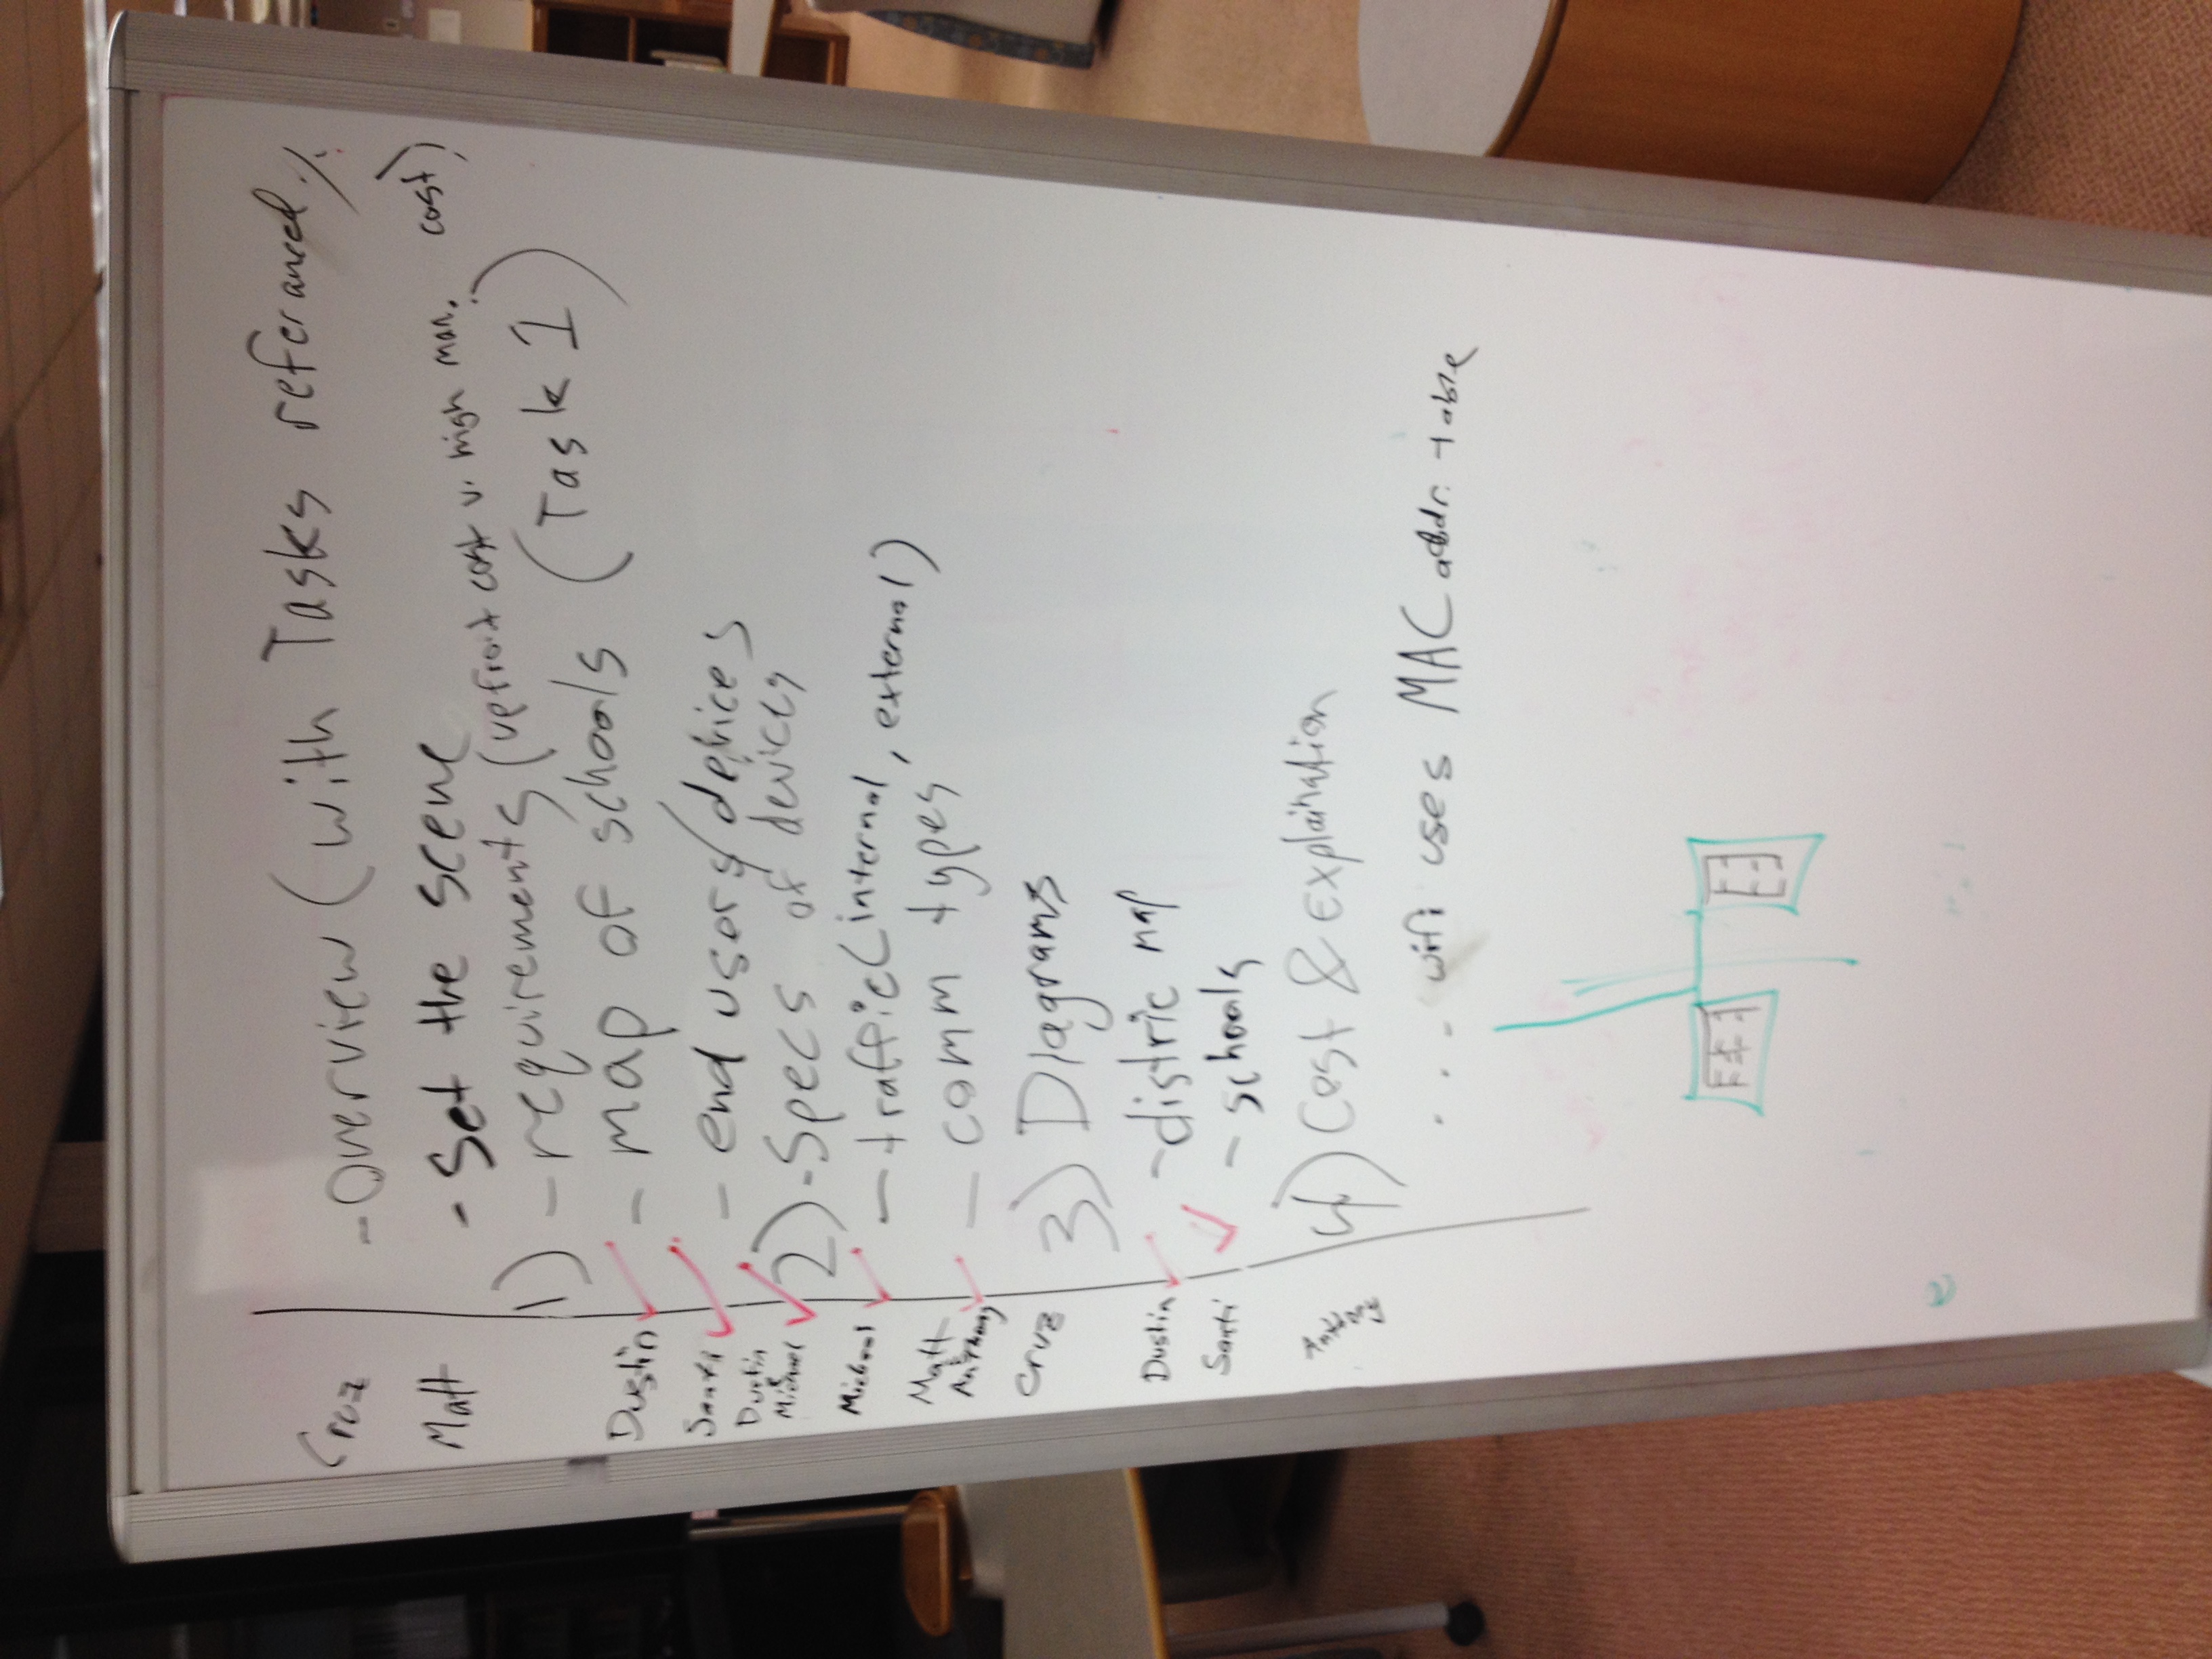 Cruz - Overview (with Tasks referanced)
Matt - Set the scene
1) - requirements (upfront cost v. high man. cost)
Dustin - map of schools (Task 1)
Santi - end users/devices
Dustin & Michael 2) - Specs of devices
Michael - traffic (internal, external)
Matt & Anthony - comm types
Cruz 3) Diagrams
Dustin - distric map
Santi - schools
Anthony 4) Cost & Explaination
... wifi uses MAC addr. table